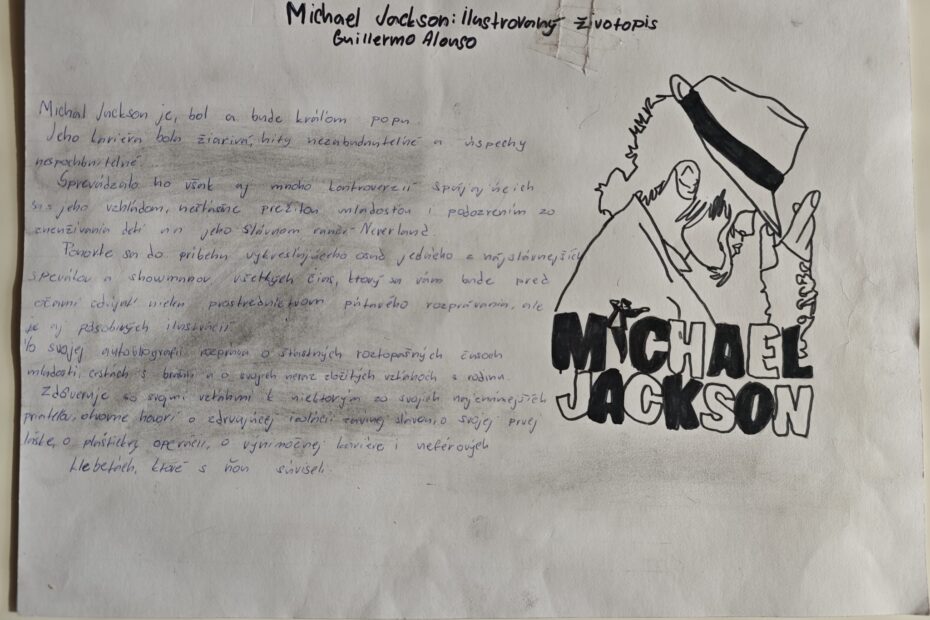 Michael Jackson: Ilustrovaný životopis
Guillermo Alonso
Michal Jackson je, bol a bude kráľom popu.
Jeho kariéra bola žiarivá, hity nezabudnuteľné a úspechy
nespochbniteľné.
Sprevádzalo ho však aj mnoho kontroverzií spájajúcich
sa s jeho vzhľadom, nešťastne prežitou mladosťou i podozrením zo
zneužívania detí na jeho slávnom ranči Neverland.
Ponorte sa do príbehu vykresľujúceho osud jedného z najslávnejších
spevákov a showmanov všetkých čias, ktorý sa vám bude pred
očami odvíjať nielen prostredníctvom pútavého rozprávania, ale
je aj pôsobivých ilustrácií.
Vo svojej autobiografii rozpráva o šťastných roztopašných časoch
mladosti, cestách s bratmi a o svojich neraz zložitých vzťahoch s rodinou.
Zdôveruje sa svojimi vzťahmi k niektorým zo svojich najcennejších
priateľov, otvorene hovorí o zdrvujúcej realite slávou, o svojej prvej
láske, o plastickej operácii, o výnimočnej kariére i neférových
klebetách, ktoré s ňou súviseli.
MICHAEL
JACKSON